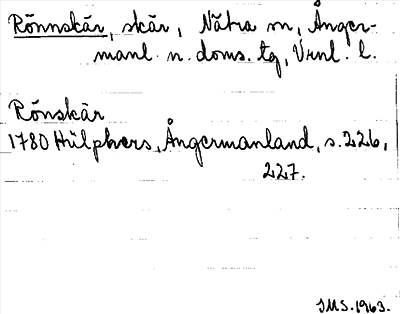 Rönnskär, skär, Nätra sn, Ånger-
manl. n. doms. tg, Vrnl. l.
Rönskär
1780 Hülphers, Ångermanland, s. 226,
227.
IMS. 1963.